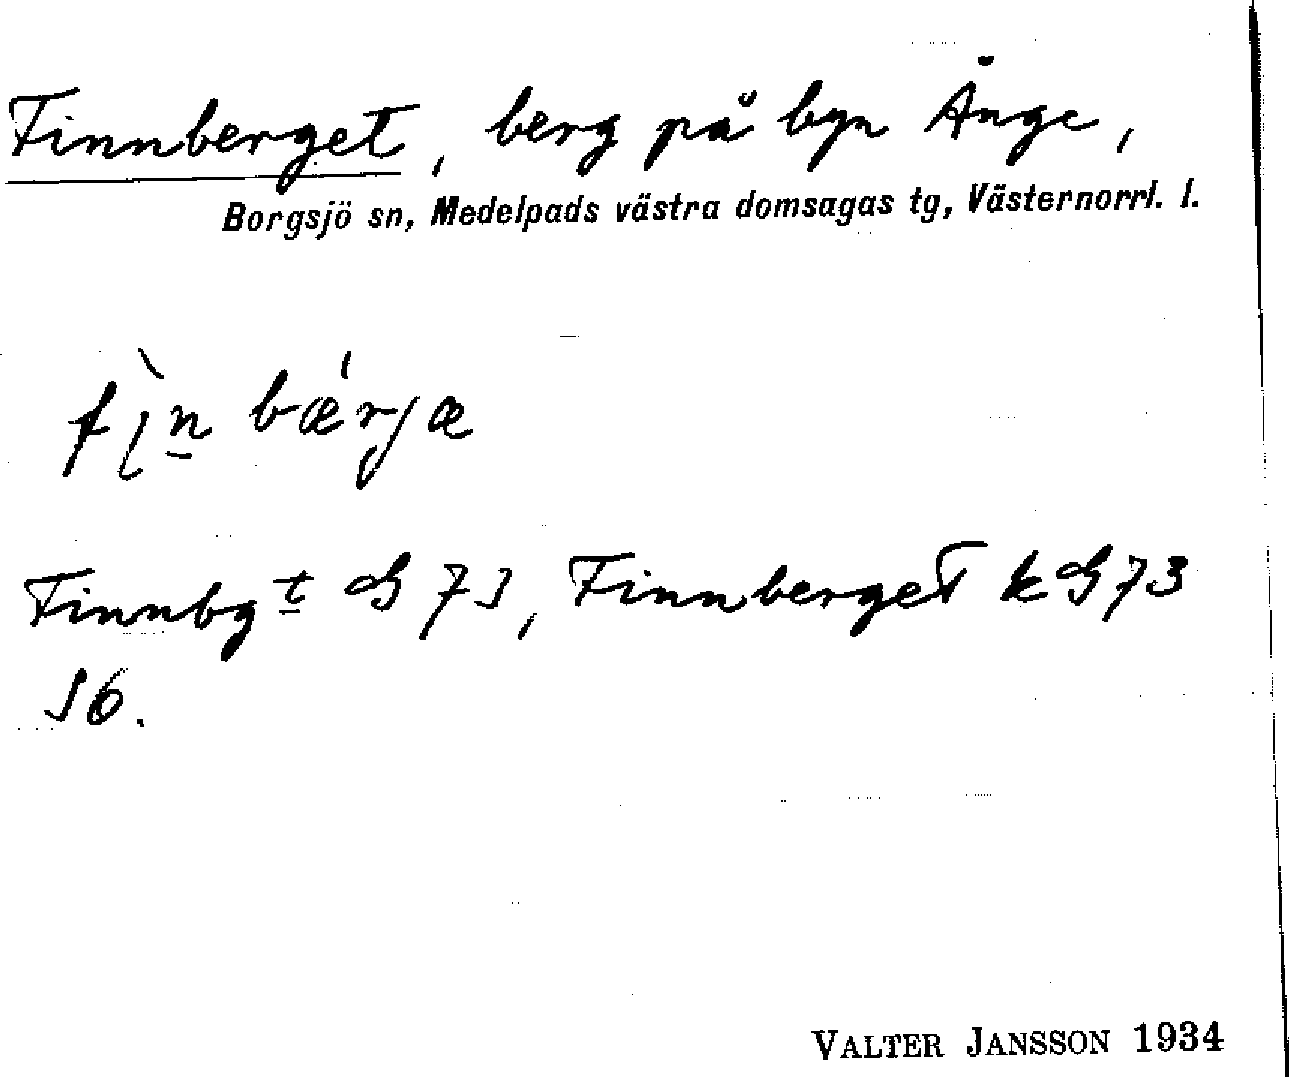 Finnberget, berg på byn Ånge,
Borgsjö sn, Medelpads västra domsagas tg, Västernorrl. l.
fìn bǽrjæ
Finnbg t GS 73, Finnberget k GS 73
S6.
VALTER JANSSON 1934